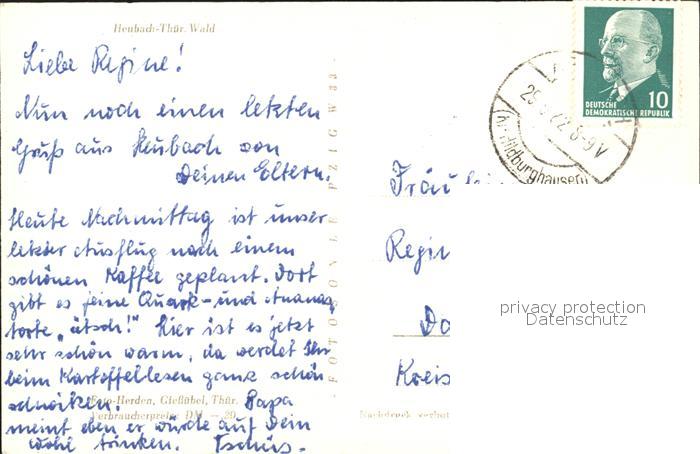 Heubach-Thür. Wald
Liebe Regine!
Nun noch einen letzten
Gruß aus Heubach von
Deinen Eltern.
Heute Nachmittag ist unser
letzter Ausflug nach einem
schönen Kaffee geplant. Dort
gibt es feine Quark- und Ananas
torte „ätsch!" Hier ist es jetzt
sehr schön warm, da werdet Ihr
beim Kartoffellesen ganz schön
schwitzen. Papa
meint eben er würde auf Dein
Wohl trinken. Tschüs.
Foto-Herden, Gießübel, Thür.
Verbraucherpreis: DM -.20
FOTOBON LEIPZIG W 33
DEUTSCHE
DEMOKRATISCHE REPUBLIK
10
8-9 V
Hildburghausen)
Fräulein
Regin
Do
Kreis
privacy protection
Datenschutz
Nachdruck verbot